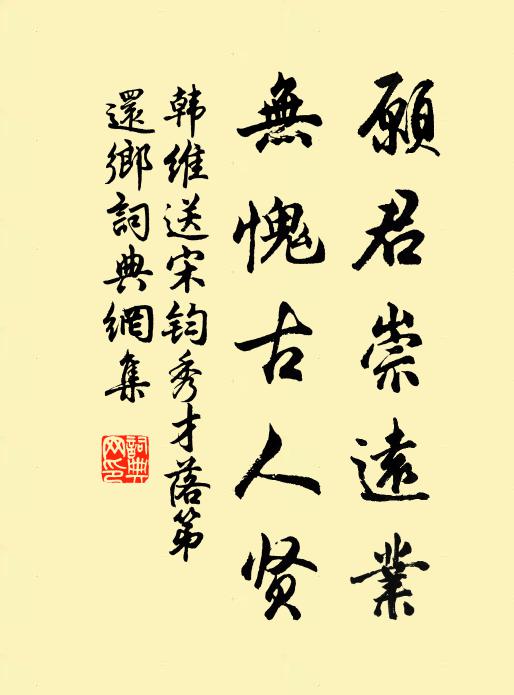 願君崇遠業
無愧古人贤
韩維送宋鈞秀才落第
還鄉詞典網集
詞典网印